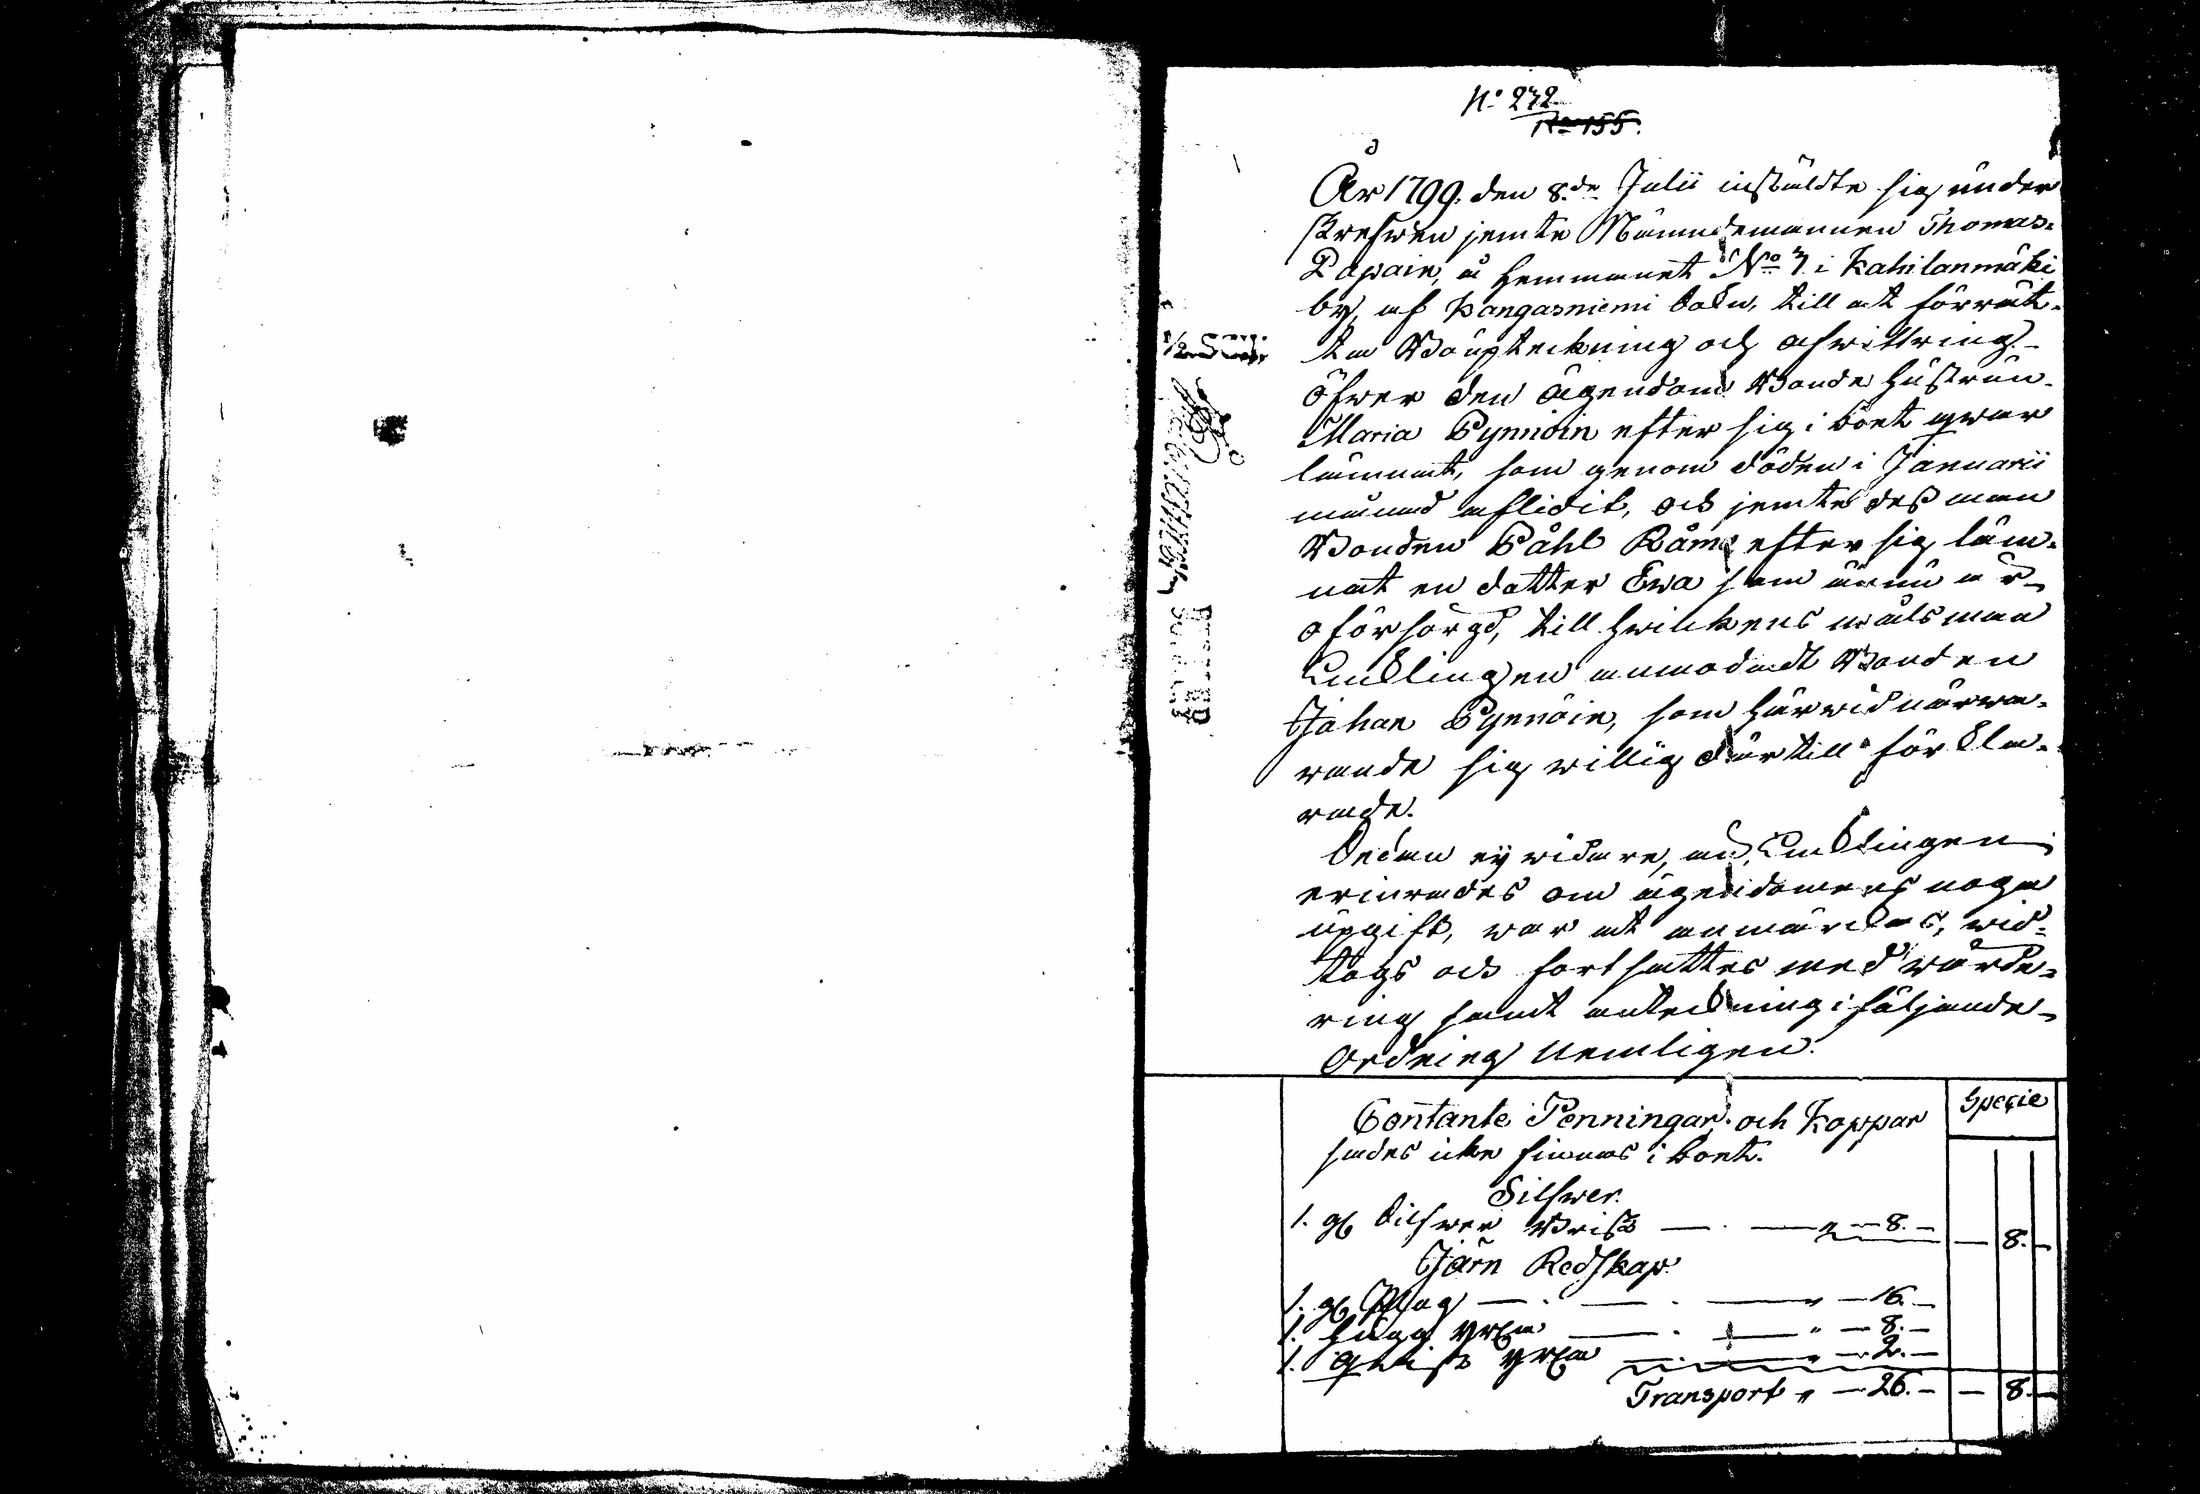 No 272
No 155.
År 1799. den 8.de Julii instäldte sig under
skrefwen jemte Nämndemannen Thomas
Papain, å Hemmanet No 7 i Kahilanmäki
by, af Kangasniemi Sokn, till at förrät-
ta Bouptekning och afwittring
öfwer den ägendom Bonde Hustrun
Maria Pynnöin efter sig i boet qwar
lämnat, som genom döden i Januarii
månad aflidit, och jemte dess man
Bonden Påhl Råm efter sig läm-
nat en dotter Ewa som ännu är
oförsörgd, till hwilkens målsman
Encklingen anmodadt Bonden
Johan Pynnöin, som härwid närwa-
rande sig willig därtill förkla-
rade.
Sedan ey widare, än Encklingen
erinrades om ägendomens noga
upgift, war at anmärckas, wid-
togs och fortsattes med wärde-
ring samt anteckning i följande
Ordning Nemligen.
Specie
Contante Penningar och Koppar
sades icke finnas i boet.
Silfwer.
1. gl Silfwer Brist — 8. — 8. —
Järn Redskap
1. gl Plog — " — 16. —
1. Hugg yxa — " — 8. —
1. Qwist yxa — " — 2. —
Transport " — 26. — — 8. —